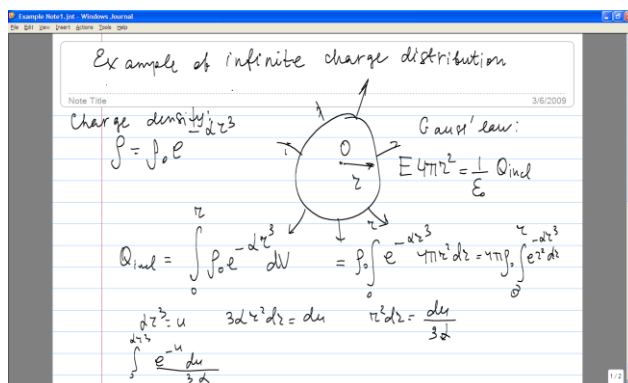 Example Note1.jnt - Windows Journal
File Edit View Insert Actions Tools Help
Example of infinite charge distribution
Note Title
3/6/2009
Charge density:
ρ = ρ₀ e^(-αr³)
Gauss' law:
O
r
E 4πr² = 1/ε₀ Q incl
Q incl = ∫₀^r ρ₀ e^(-αr³) dV = ρ₀ ∫₀^r e^(-αr³) 4πr² dr = 4πρ₀ ∫₀^r e^(-αr³) r² dr
αr³ = u 3αr² dr = du r² dr = du/3α
∫₀^(αr³) e^(-u) du/3α
1/2